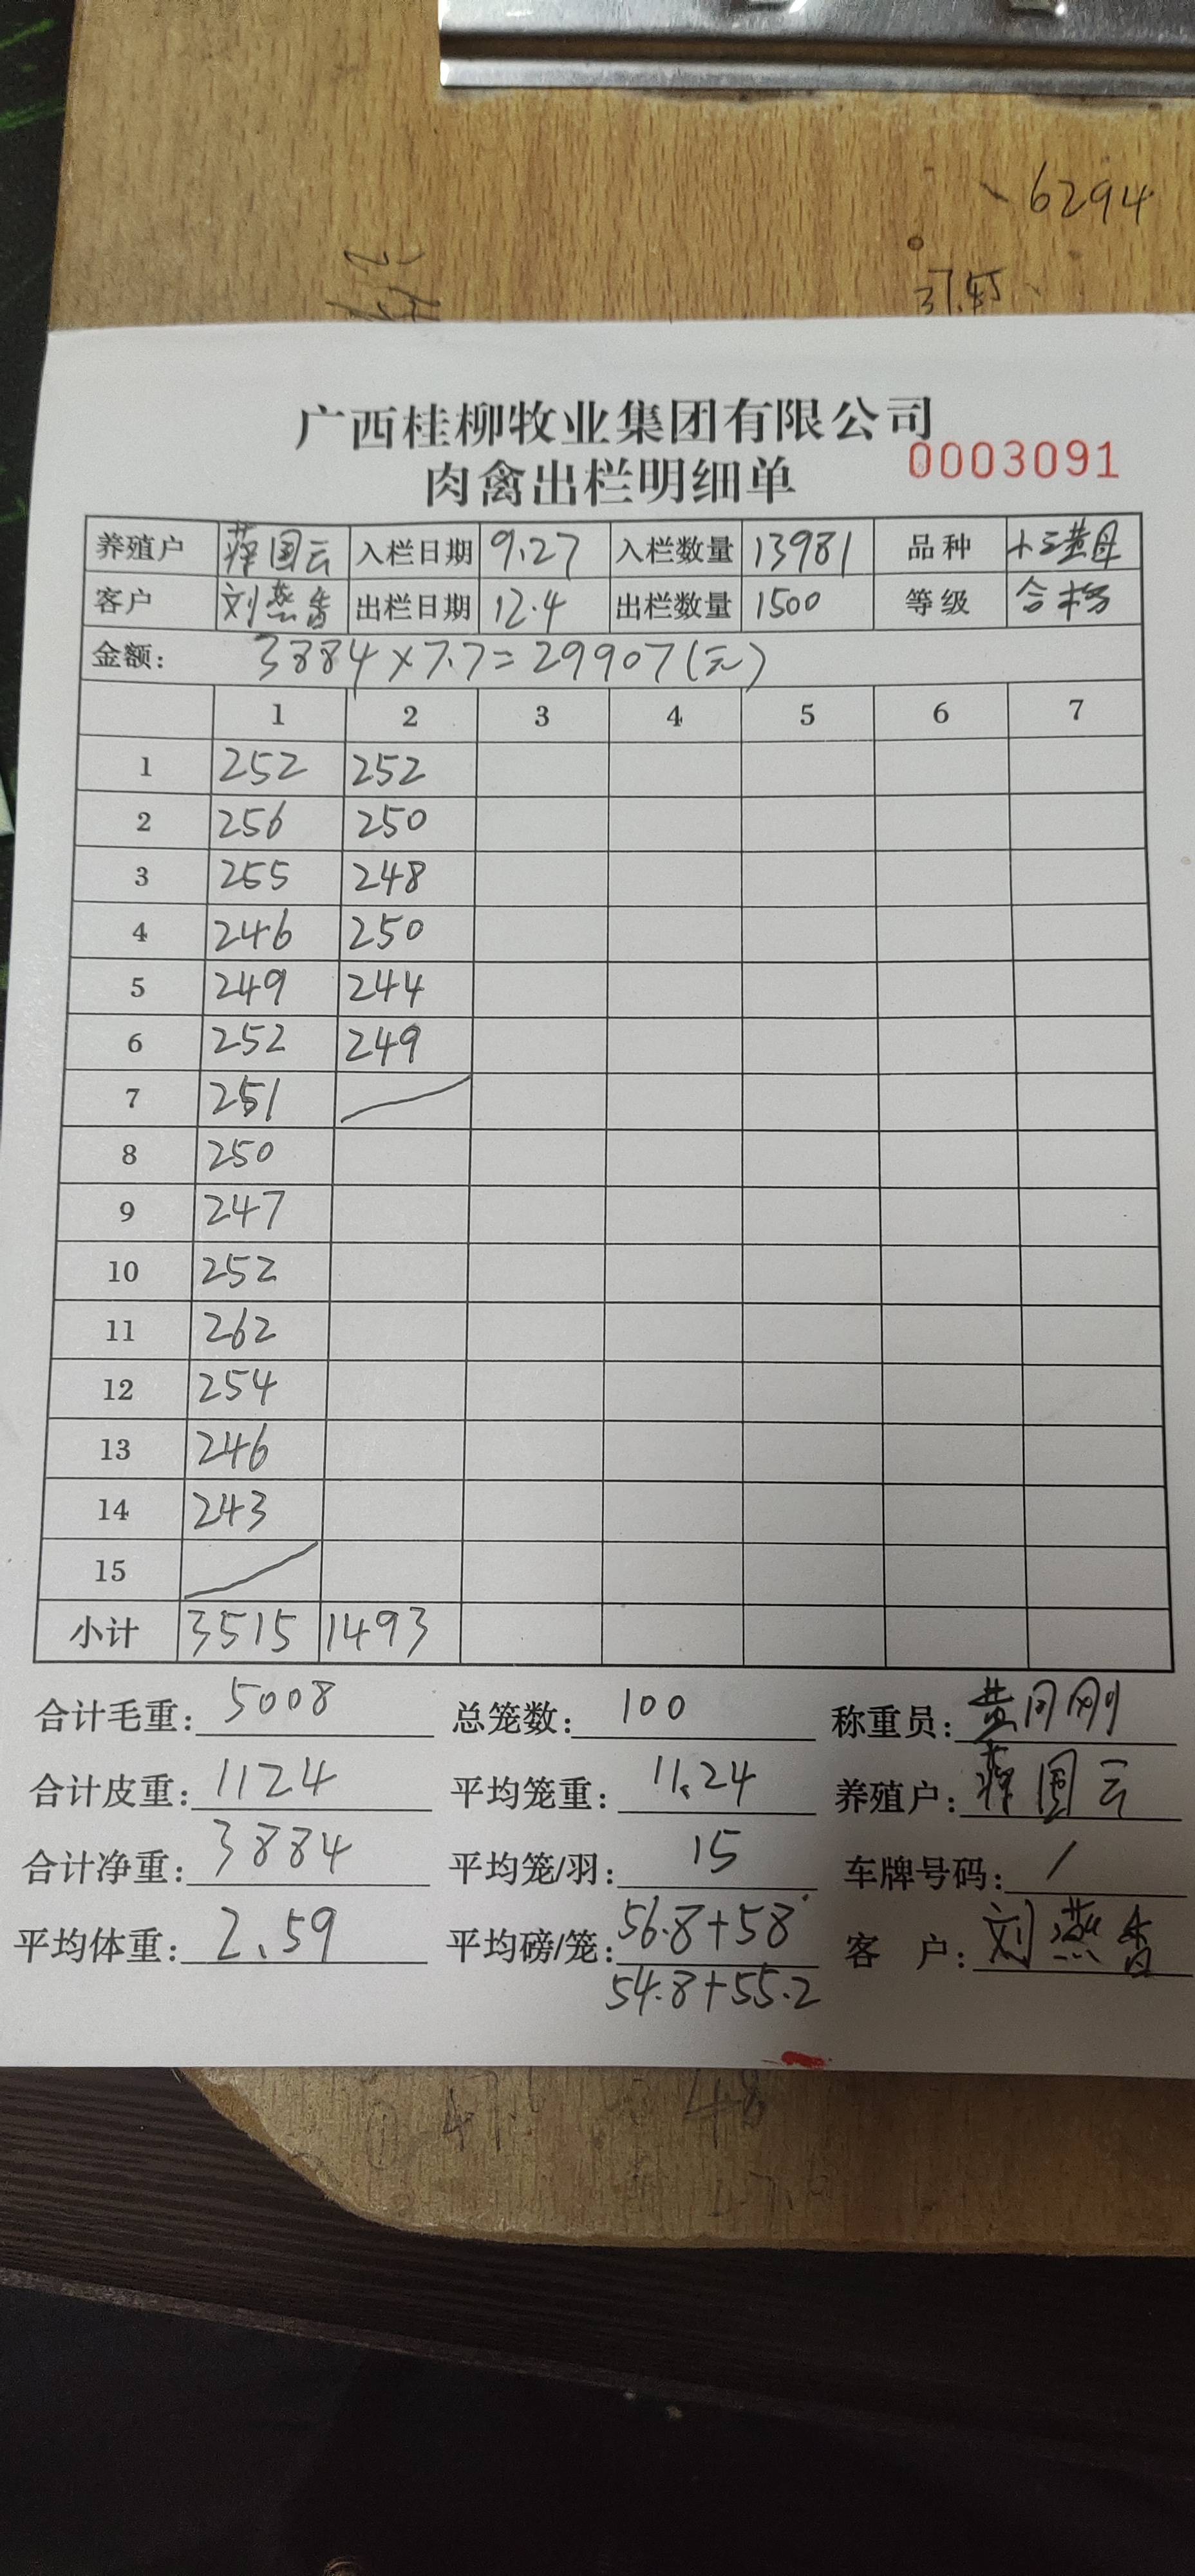 6294
37.45
广西桂柳牧业集团有限公司
肉禽出栏明细单 0003091
养殖户 蒋国云 入栏日期 9.27 入栏数量 13981 品种 土三黄母
客户 刘燕香 出栏日期 12.4 出栏数量 1500 等级 合格
金额: 3884×7.7=29907(元)
1 2 3 4 5 6 7
1 252 252
2 256 250
3 255 248
4 246 250
5 249 244
6 252 249
7 251
8 250
9 247
10 252
11 262
12 254
13 246
14 243
15
小计 3515 1493
合计毛重: 5008 总笼数: 100 称重员: 黄月刚
合计皮重: 1124 平均笼重: 11.24 养殖户: 蒋国云
合计净重: 3884 平均笼/羽: 15 车牌号码: /
平均体重: 2.59 平均磅/笼: 56.8+58 客 户: 刘燕香
54.8+55.2
48